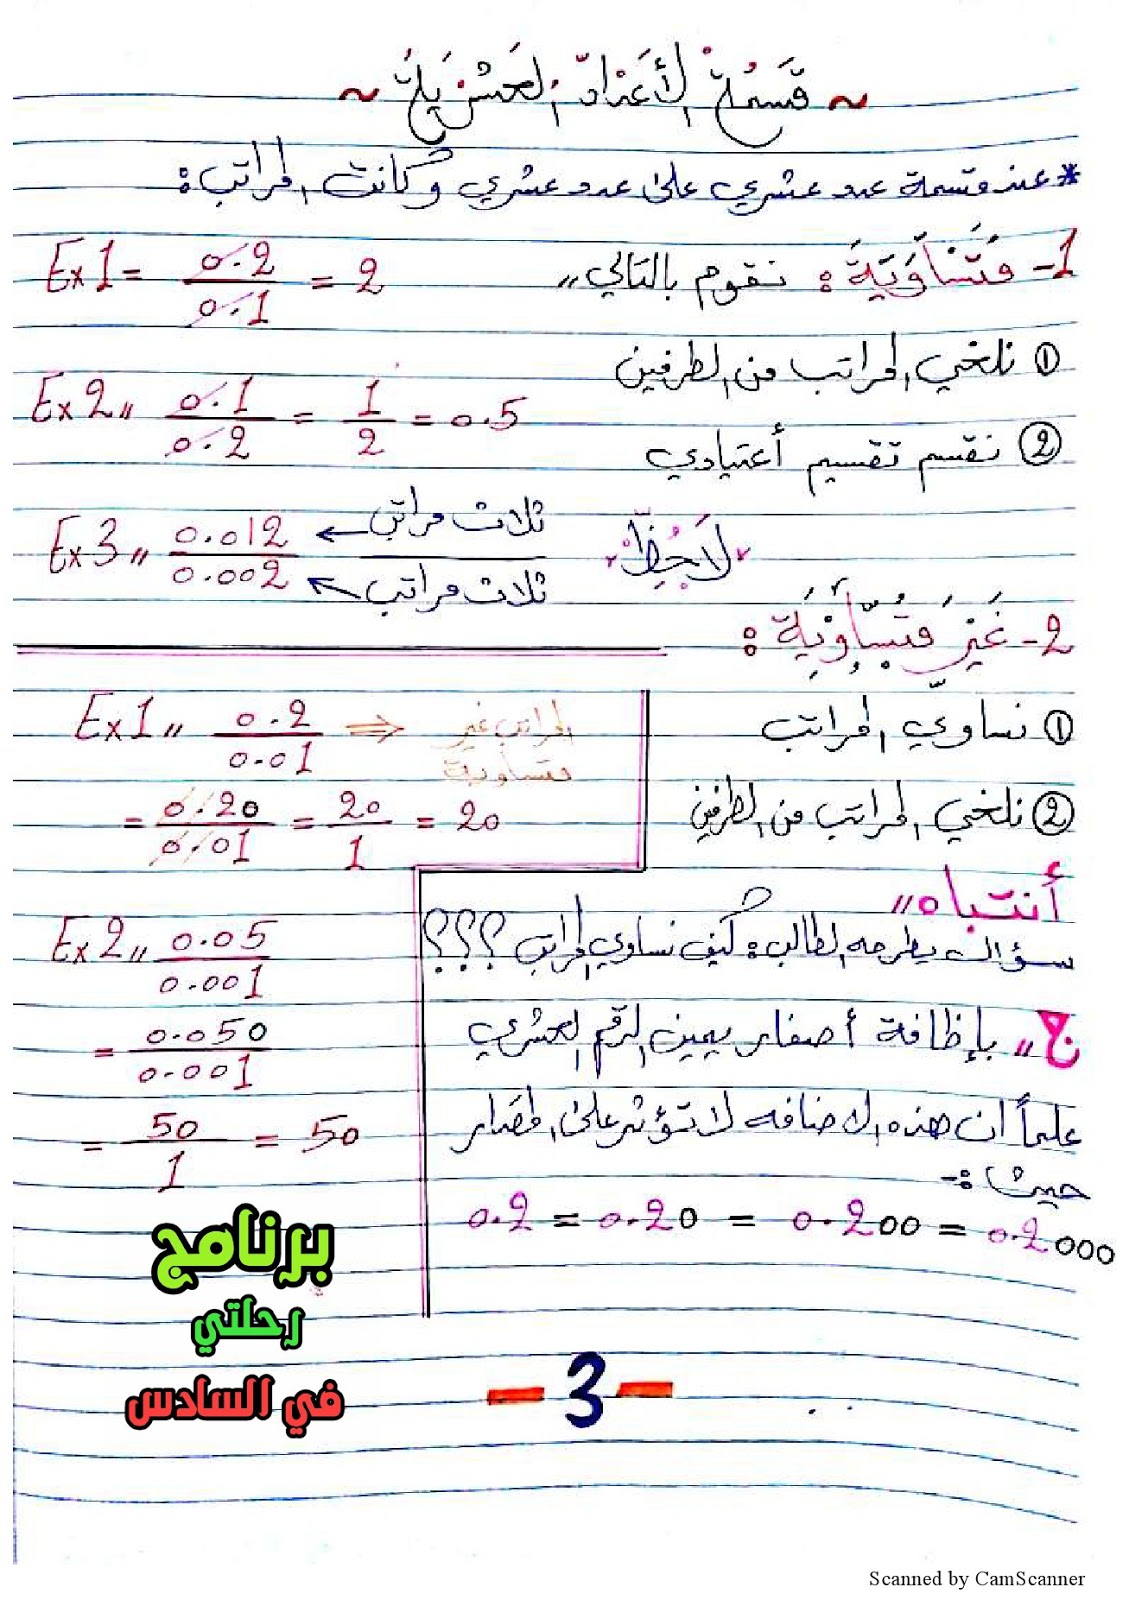 ~ قِسْمَةُ الأَعْدَادِ العَشْرِيَةُ ~
* عند قسمة عدد عشري على عدد عشري وكانت المراتب:
1- مُتَسَاوِيَةَ: نقوم بالتالي //
Ex1= 0.2/0.1 = 2
① نلغي المراتب من الطرفين
Ex2// 0.1/0.2 = 1/2 = 0.5
② نقسم تقسيم أعتيادي
لَاحِظْ
Ex3// 0.012/0.002
← ثلاث مراتب
← ثلاث مراتب
2- غَيْر مُتَسَاوِيَة:
① نساوي المراتب
Ex1// 0.2/0.01 ⇒ المراتب غير متساوية
② نلغي المراتب من الطرفين
= 0.20/0.01 = 20/1 = 20
أنتباه//
سؤال يطرحه الطالب: كيف نساوي المراتب ؟؟؟
Ex2// 0.05/0.001
ج// بإظافة أصفار يمين الرقم العشري
= 0.050/0.001
علماً ان هذه الاضافه لا تؤثر على المقدار
= 50/1 = 50
حيث:-
0.2 = 0.20 = 0.200 = 0.2000
برنامج
رحلتي
في السادس
- 3 -
Scanned by CamScanner